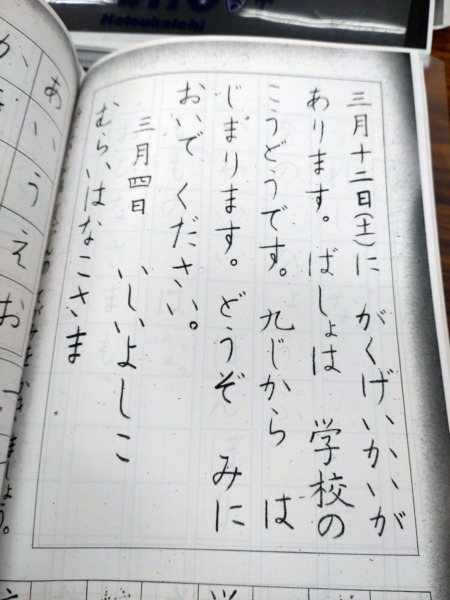 Hatsukoichi
三月十二日(土)に がくげいかいが
あります。ばしょは 学校の
こうどうです。九じから は
じまります。どうぞ みに
おいで ください。
三月四日 いしいよしこ
むらいはなこさま
あいうえお